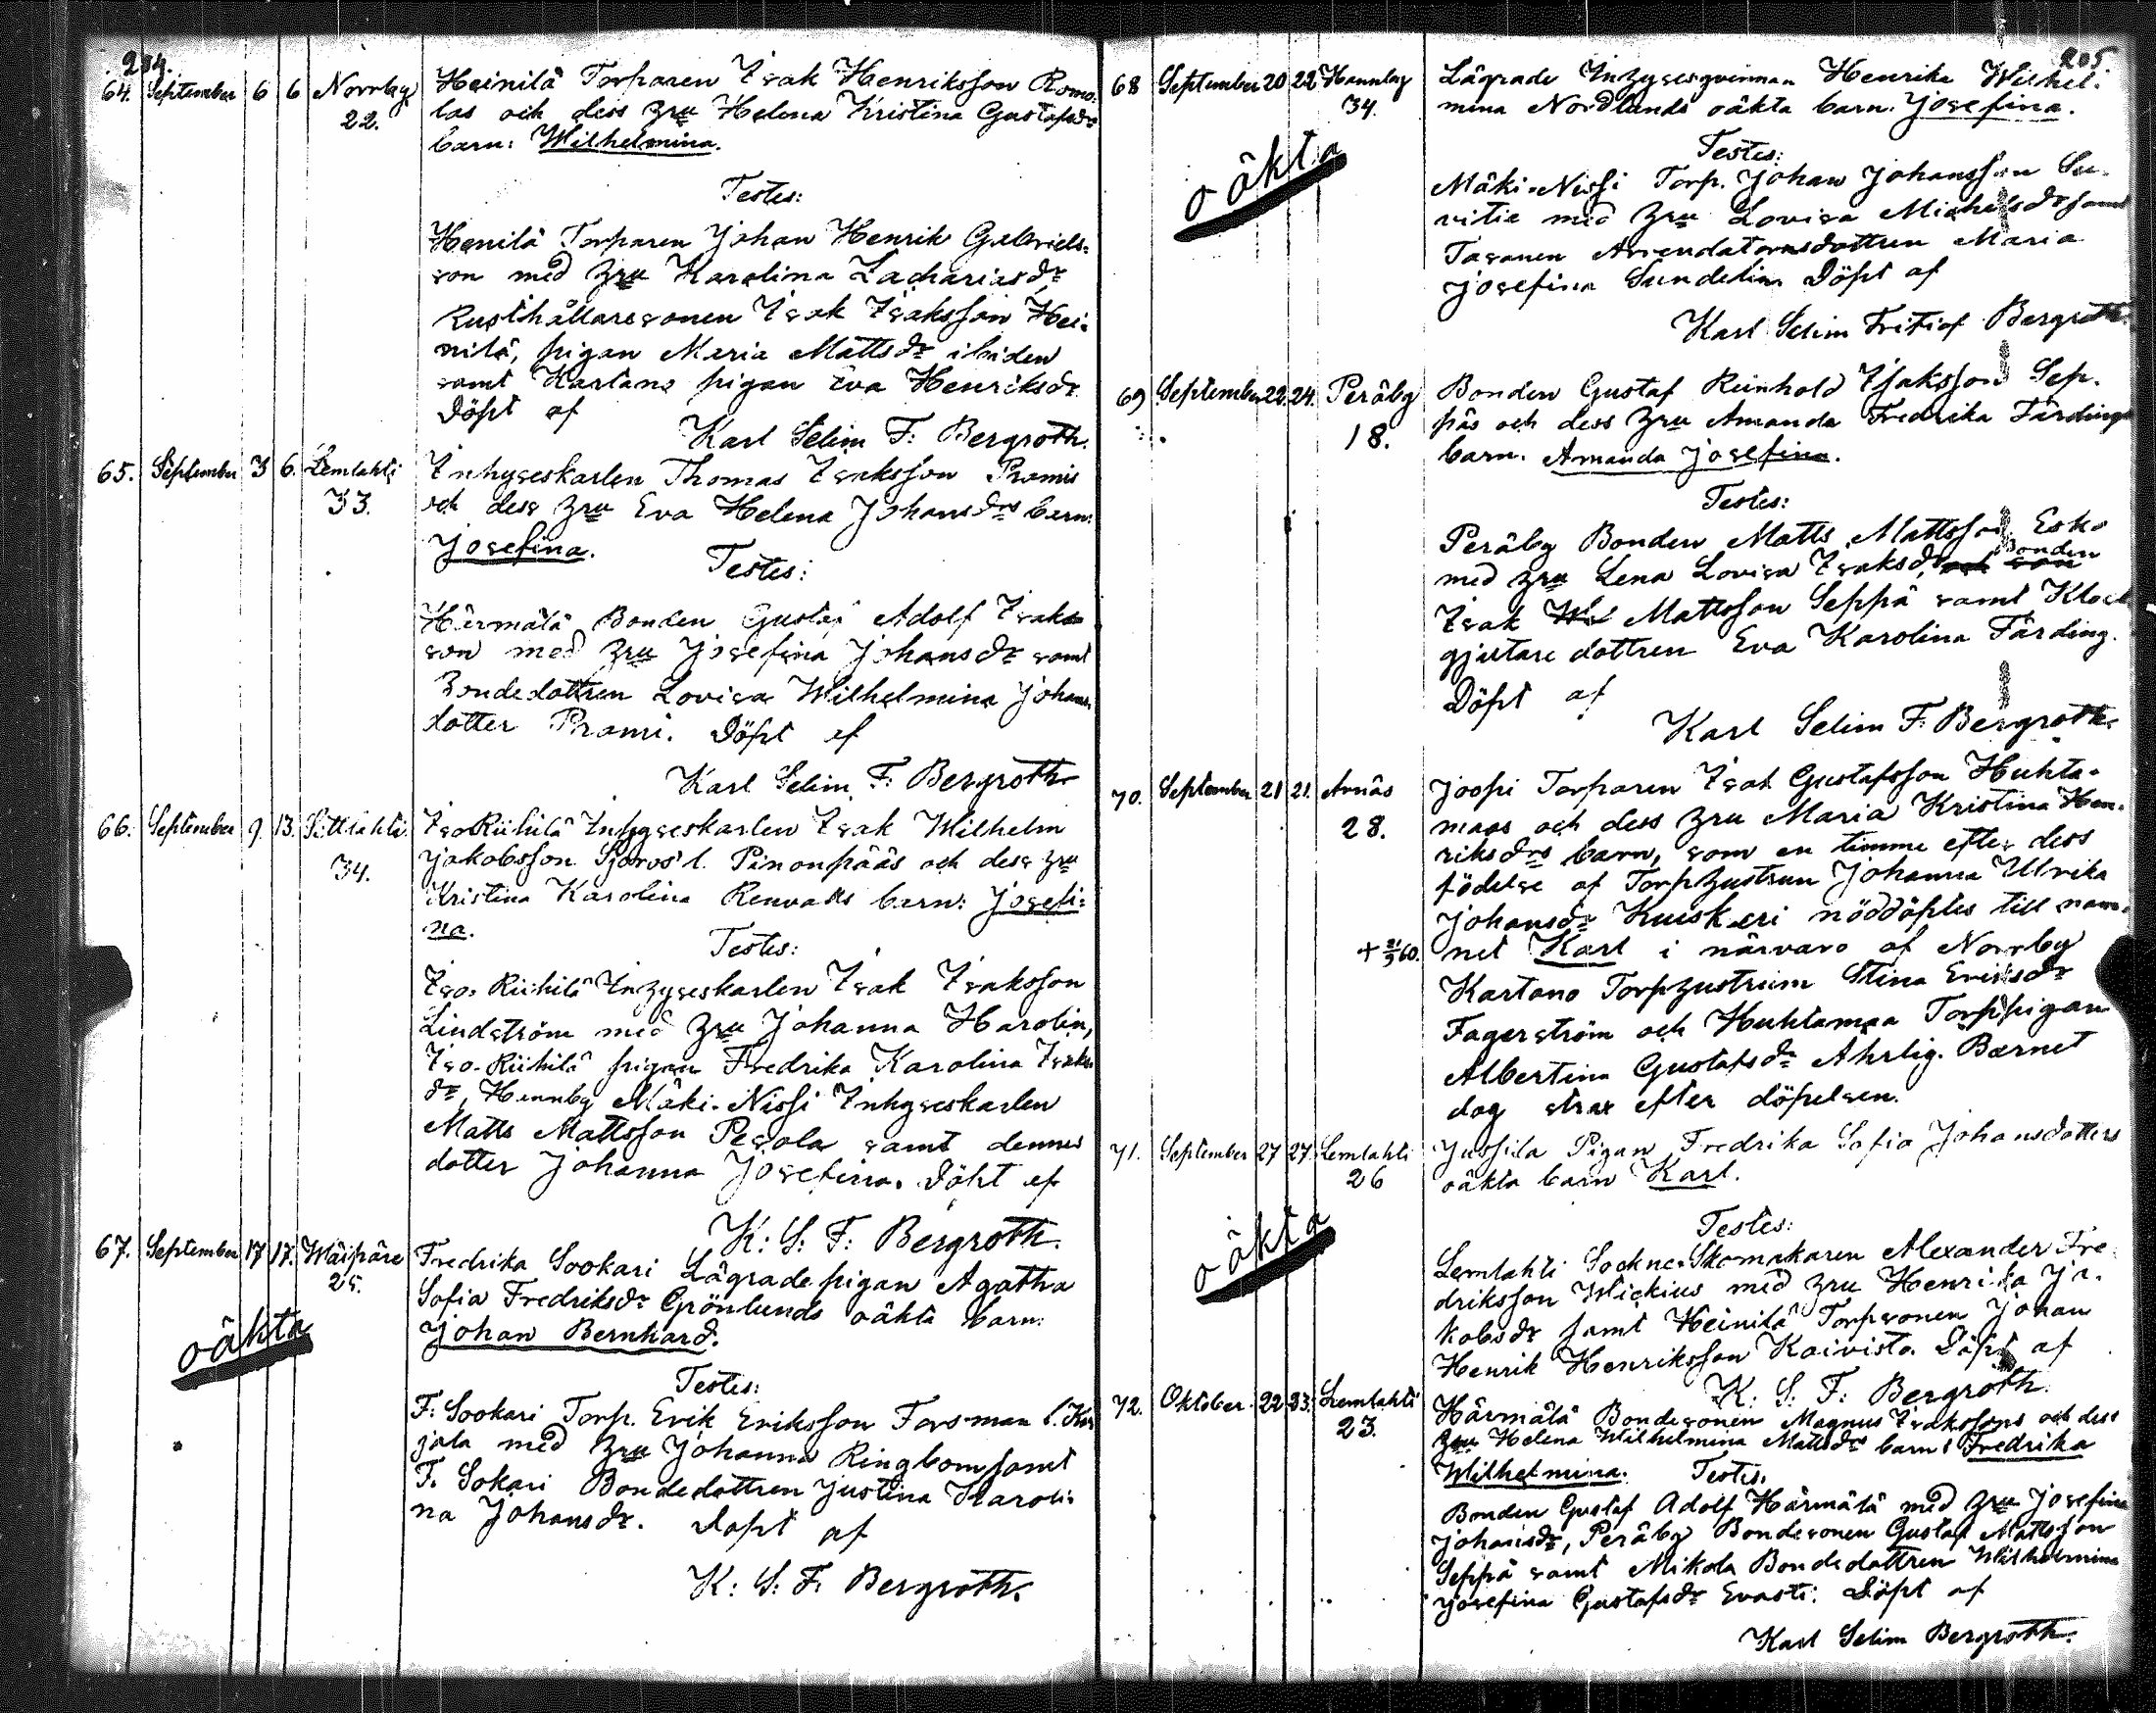 204.
64. September 6 6 Norrby 22. Heinilä Torparen Isak Henriksson Romo:
las och dess Hru Helena Kristina Gustafsdrs
barn: Wilhelmina.
Testes:
Henilä Torparen Johan Henrik Gabriels-
son med Hru Karolina Zachariasdr,
Rusthållaresonen Isak Isaksson Hei-
nilä, pigan Maria Mattsdr ibiden
samt Kartano pigan Eva Henriksdr
Döpt af
Karl Selim F: Bergroth.
65. September 3 6. Lemlahti 33. Inhyseskarlen Thomas Isaksson Prami
och dess Hru Eva Helena Johansdrs barn:
Josefina.
Testes:
Härmälä Bonden Gustaf Adolf Isaks
son med Hru Josefina Johansdr samt
Bondedottren Lovisa Wilhelmina Johans
dotter Prami. Döpt af
Karl Selim F: Bergroth
66. September 9. 13. Sittlahti 34. Iso Riihilä Inhyseskarlen Isak Wilhelm
Jakobsson Sjöros l. Pinonpääs och dess Hru
Kristina Karolina Renvalls barn: Josefi:
na.
Testes:
Iso. Riihilä Inhyseskarlen Isak Isaksson
Lindström med Hru Johanna Harolin,
Iso. Riihilä pigan Fredrika Karolina Isaks
dr, Hannby Mäki-Nissi Inhyseskarlen
Matts Mattsson Pesola samt dennes
dotter Johanna Josefina. Döpt af
K: S: F: Bergroth.
67. September 17 17. Wäipäre 25. Fredrika Sookari Lägrade pigan Agatha
Sofia Fredriksdr Grönlunds oäkta barn:
Johan Bernhard.
oäkta
Testes:
F: Sookari Torp. Erik Eriksson Forsman l. Kar
jala med Hru Johanna Ringbom samt
F. Sokari Bondedottren Justina Karoli-
na Johansdr. Döpt af
K: S: F: Bergroth.
205
68 September 20 22 Hannby 34. Lägrade Inhysesqvinnan Henrika Wilhel-
mina Nordlunds oäkta barn: Josefina.
oäkta
Testes:
Mäki-Nissi Torp. Johan Johansson Su-
vitie med Hru Lovisa Michelsdr samt
Tasanen Arrendatorsdottren Maria
Josefina Sundelin Döpt af
Karl Selim Fritiof Bergroth.
69 September 22. 24. Peräby 18. Bonden Gustaf Reinhold Isaksson Sep-
päs och dess Hru Amanda Fredrika Färdings
barn. Amanda Josefina.
Testes:
Peräby Bonden Matts Mattsson Esko
med Hru Lena Lovisa Isaksdr, Bonden
Isak Mattsson Seppä samt Klock
gjutare dottren Eva Karolina Färding.
Döpt af
Karl Selim F: Bergroth.
70. September 21 21. Arnäs 28. Joopi Torparen Isak Gustafsson Huhta-
maas och dess Hru Maria Kristina Hen-
riksdrs barn, som en timme efter dess
födelse af Torphustrun Johanna Ulrika
Johansdr Kuiskeri nöddöptes till nam-
+ 21/9 60. net Karl i närvaro af Norrby
Kartano Torphustrun Stina Eriksdr
Fagerström och Huhtamaa Torppigan
Albertina Gustafsdr Ahrlig. Barnet
dog strax efter döpelsen.
71. September 27 27. Lemlahti 26 Jussila Pigan Fredrika Sofia Johansdotters
oäkta barn Karl.
oäkta
Testes:
Lemlahti Sockne-Skomakaren Alexander Fre-
driksson Wickius med Hru Henrika Ja-
kobsdr samt Heinilä Torpsonen Johan
Henrik Henriksson Koivisto. Döpt af
K: S: F: Bergroth.
72. Oktober. 22 23. Lemlahti 23. Härmälä Bondesonen Magnus Isakssons och dess
Hru Helena Wilhelmina Mattsdrs barn: Fredrika
Wilhelmina. Testes.
Bonden Gustaf Adolf Härmälä med Hru Josefina
Johansdr, Peräby Bondesonen Gustaf Mattsson
Seppä samt Mikola Bondedottren Wilhelmina
Josefina Gustafsdr Evasti. Döpt af
Karl Selim Bergroth.